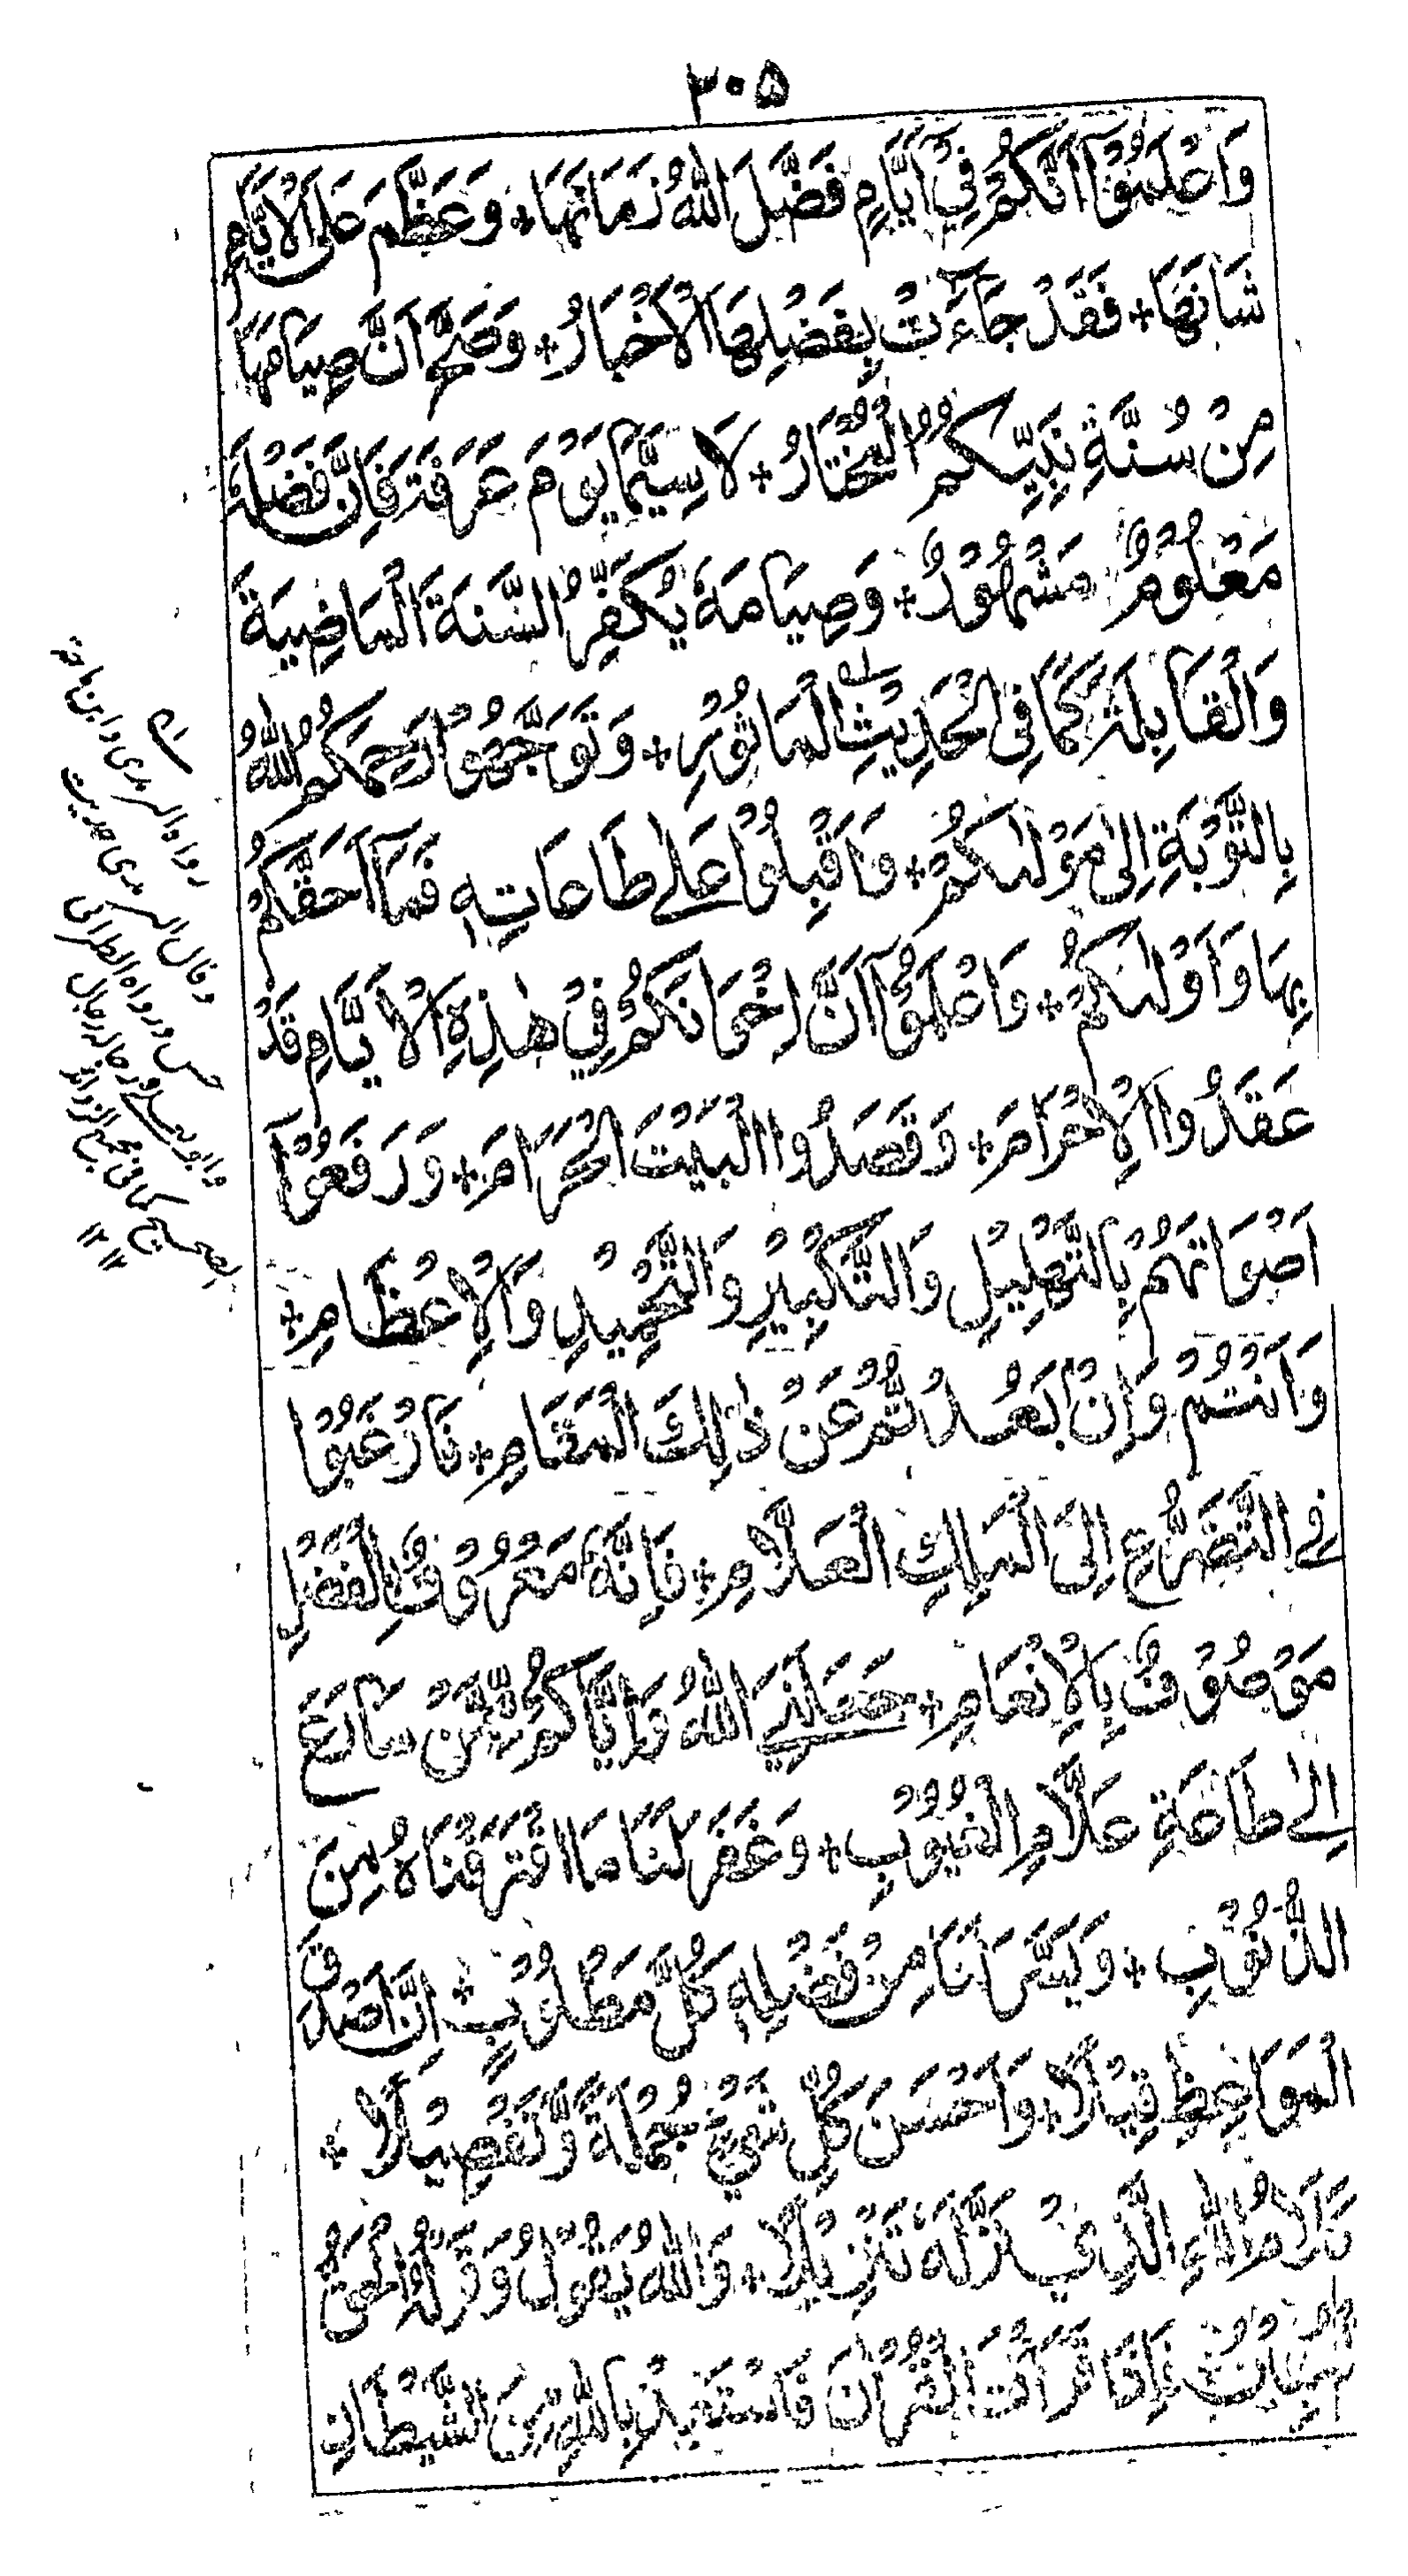 ۳۰۵
وَاعْلَمُوْٓا اَنَّكُمْ فِيْٓ اَيَّامٍ فَضَّلَ اللّٰهُ زَمَانَهَا + وَعَظَّمَ عَلَى الْاَيَّامِ
شَانَهَا + فَقَدْ جَآءَتْ بِفَضْلِهَا الْاَخْبَارُ + وَصَحَّ اَنَّ صِيَامَهَا
مِنْ سُنَّةِ نَبِيِّكُمُ الْمُخْتَارُ + لَا سِيَّمَا يَوْمَ عَرَفَةَ فَاِنَّ فَضْلَهٗ
مَعْلُوْمٌ مَشْهُوْدٌ + وَصِيَامَهٗ يُكَفِّرُ السَّنَةَ الْمَاضِيَةَ
وَالْقَابِلَةَ كَمَا فِي الْحَدِيْثِ الْمَاثُوْرِ + وَتَوَجَّهُوْا رَحِمَكُمُ اللّٰهُ
بِالتَّوْبَةِ اِلٰى مَوْلٰىكُمْ + وَاَقْبِلُوْا عَلٰے طَاعَاتِهٖ فَمَآ اَحَقَّكُمْ
بِهَا وَاَوْلٰىكُمْ + وَاعْلَمُوْٓا اَنَّ اِخْوَانَكُمْ فِيْ هٰذِهِ الْاَيَّامِ قَدْ
عَقَدُوا الْاِحْرَامَ + وَقَصَدُوا الْبَيْتَ الْحَرَامَ + وَرَفَعُوْآ
اَصْوَاتَهُمْ بِالتَّهْلِيْلِ وَالتَّكْبِيْرِ وَالتَّحْمِيْدِ وَالْاِعْظَامِ +
وَاَنْتُمْ وَاِنْ بَعُدْتُمْ عَنْ ذٰلِكَ الْمَقَامِ + فَارْغَبُوْا
فِے التَّضَرُّعِ اِلَى الْمَلِكِ الْعَلَّامِ + فَاِنَّهٗ مَعْرُوْفٌ بِالْفَضْلِ
مَوْصُوْفٌ بِالْاِنْعَامِ + جَعَلَنِيَ اللّٰهُ وَاِيَّاكُمْ مِّمَّنْ سَارَعَ
اِلٰے طَاعَةِ عَلَّامِ الْغُيُوْبِ + وَغَفَرَ لَنَا مَا اقْتَرَفْنَاهُ مِنَ
الذُّنُوْبِ + وَيَسَّرَ لَنَا مِنْ فَضْلِهٖ كُلَّ مَطْلُوْبٍ + اِنَّ اَصْدَقَ
الْمَوَاعِظِ قِيْلًا + وَاَحْسَنَ كُلِّ شَيْءٍ جُمْلَةً وَّتَفْصِيْلًا +
كَلَامُ اللّٰهِ الَّذِيْ نَزَّلَهٗ تَنْزِيْلًا + وَاللّٰهُ يَقُوْلُ وَقَوْلُهُ الْحَقُّ
فَاِذَا قَرَأْتَ الْقُرْاٰنَ فَاسْتَعِذْ بِاللّٰهِ مِنَ الشَّيْطَانِ
رواه الترمذى وابن ماجة
وقال الترمذى حديث
حسن ورواه الطبرانى
وابو يعلے ورجاله رجال
الصحيح كما فى مجمع الزوائد
۱۲